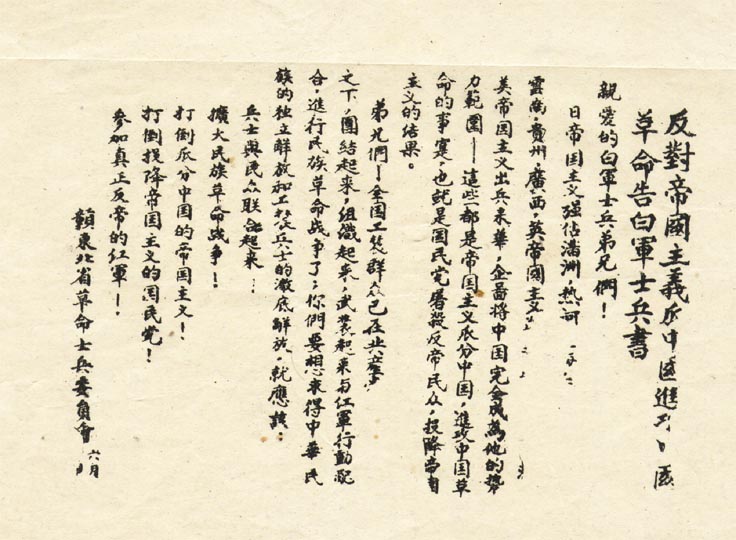 反對帝國主義瓜中國進
革命告白軍士兵書
親愛的白軍士兵弟兄們！
日帝国主义强佔满洲，热河
雲南，貴州，廣西，英帝國主义
美帝国主义出兵来華，企圖将中国完全成為他的势
力範圍——這些都是帝国主义瓜分中国，進攻中国革
命的事寔，也就是国民党屠殺反帝民众，投降帝国
主义的结果。
弟兄們！全国工農群众已在共產
之下，團结起来，組織起来，武裝起来与红軍行動配
合，進行民族革命战争了，你們要想来得中華民
族的独立解放和工農兵士的澈底解放，就應該：
兵士與民众联合起来
擴大民族革命战争！
打倒瓜分中国的帝国主义！
打倒投降帝国主义的国民党！
参加真正反帝的红軍！
贛東北省革命士兵委員會
六月